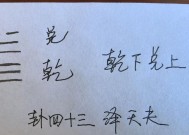 兑
乾 乾下兑上
卦四十三 泽天夬